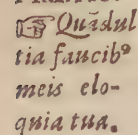 ☞ Quãdul
tia faucibꝰ
meis elo-
quia tua.